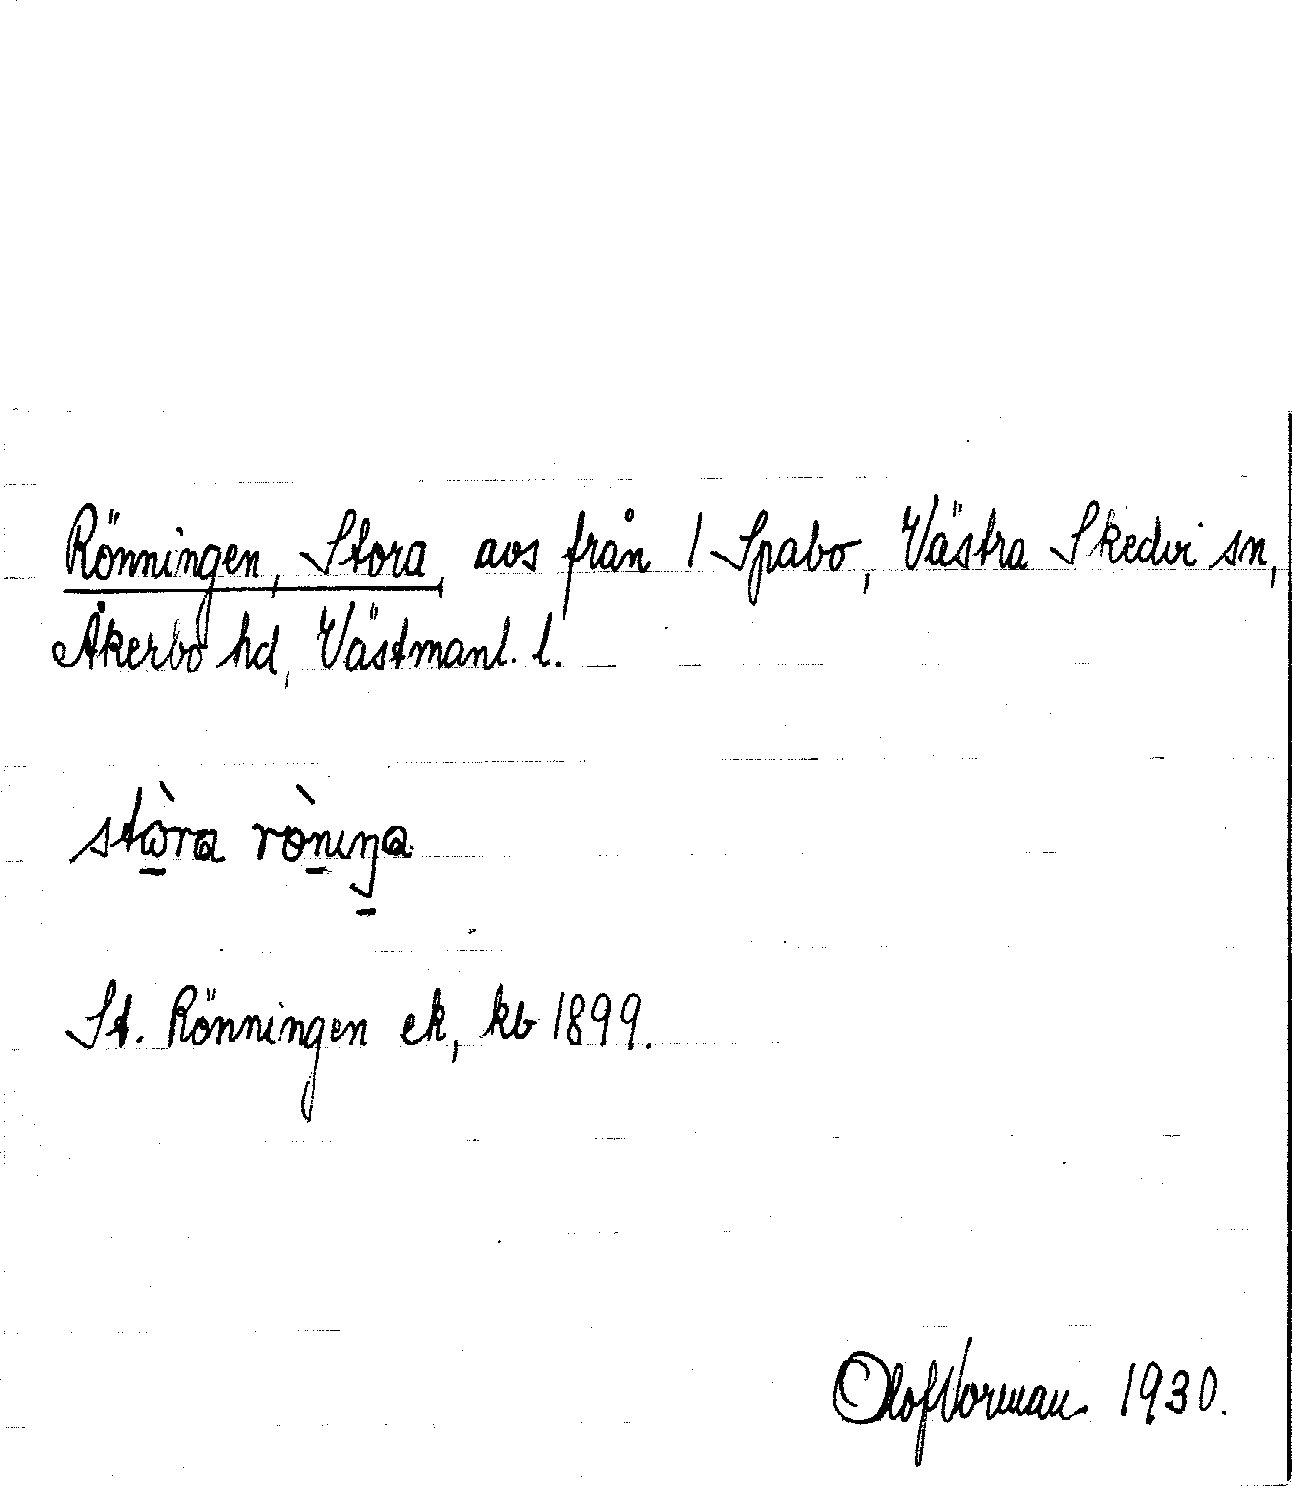 Rönningen, Stora, avs från 1 Spabo, Västra Skedvi sn,
Åkerbo hd, Västmanl. l.
St. Rönningen ek, kb 1899.
Olof Vorman 1930.